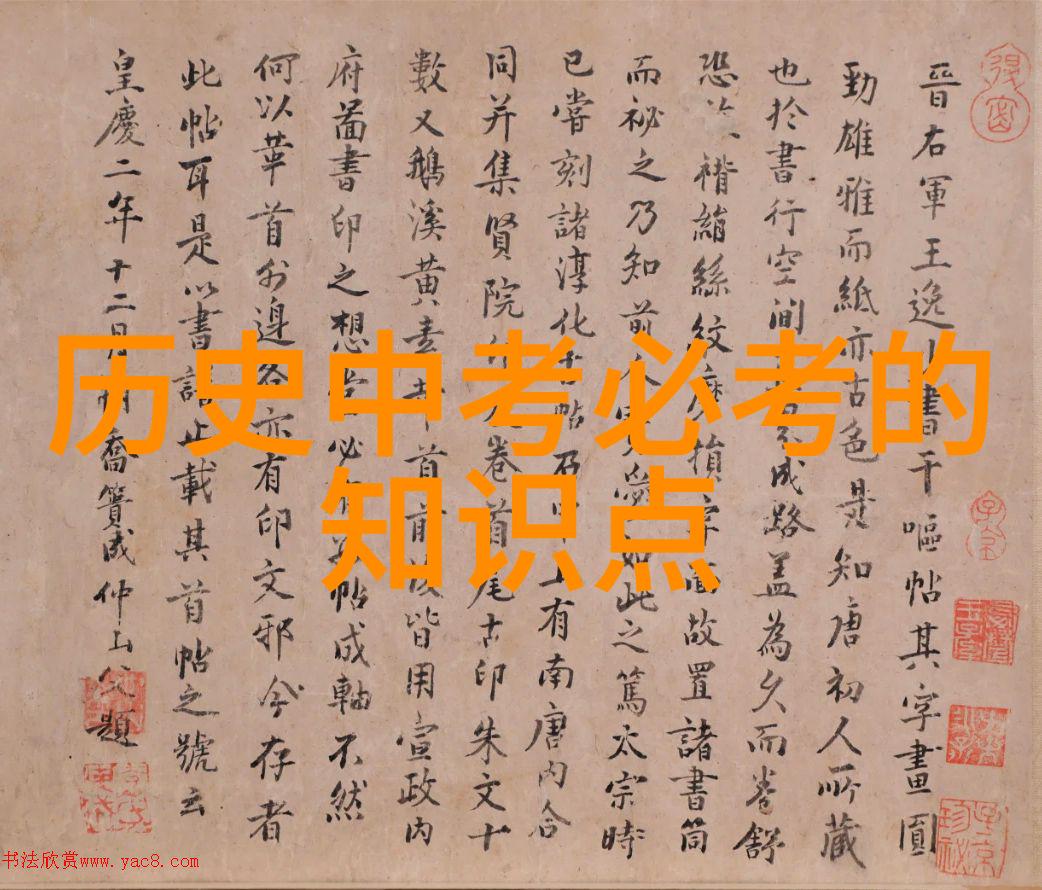 历史中考必考的
知识点
晋右軍王逸書干嘔帖其字畫圓
勁雄雅而紙亦古色是知唐初人所藏
也於書行空間成路盖為久而卷舒
恐褙絹絲紋損字故置諸書筒
而祕之乃知前人如此之篤太宗時
已嘗刻諸淳化帖上有南唐内合
同并集賢院卷首尾古印朱文十
數又鵝溪黄素首皆用宣政内
府啚書印之想必帖成軸不然
何以華首邉各亦有印文邪今存者
此帖耳是以書止載其首帖之號云
皇慶二年十二月喬簣成仲山父題
书法欣赏www.yac8.com